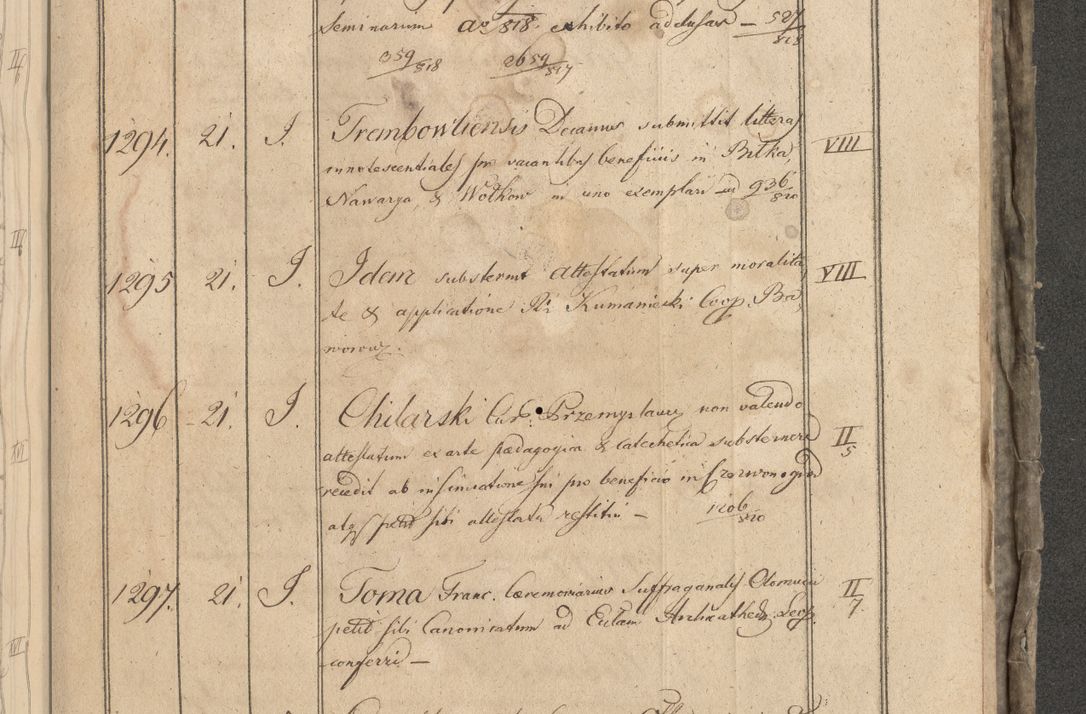 Seminarum a̅o̅ 818. exhibito adclusar — 527/818
359/818 2659/817
1294. 21. J. Trembowliensis Decanus submittit litteras VIII
innotescentiales pr vacantibus beneficiis in Bilka,
Nawarya, & Wolkow in uno exemplari ad 936/820
1295 21. J. Idem substernit attestatum super moralita VIII
te & applicatione Rdi Kumaniecki Coop. Ba
worow.
1296 21. J. Chilarski Cur. Przemyslany non valendo II/5
attestatum ex arte pædagogica & catechetica substernere
recedit ab insinuatione sui pro beneficio in Czerwonogrod
atq petit sibi attestata restitui — 1206/820
1297. 21. J. Toma Franc. Cæremoniarius Suffraganalis Olomucii II/7.
petit sibi Canonicatum ad Eccłam Archicathed. Leop.
conferri —